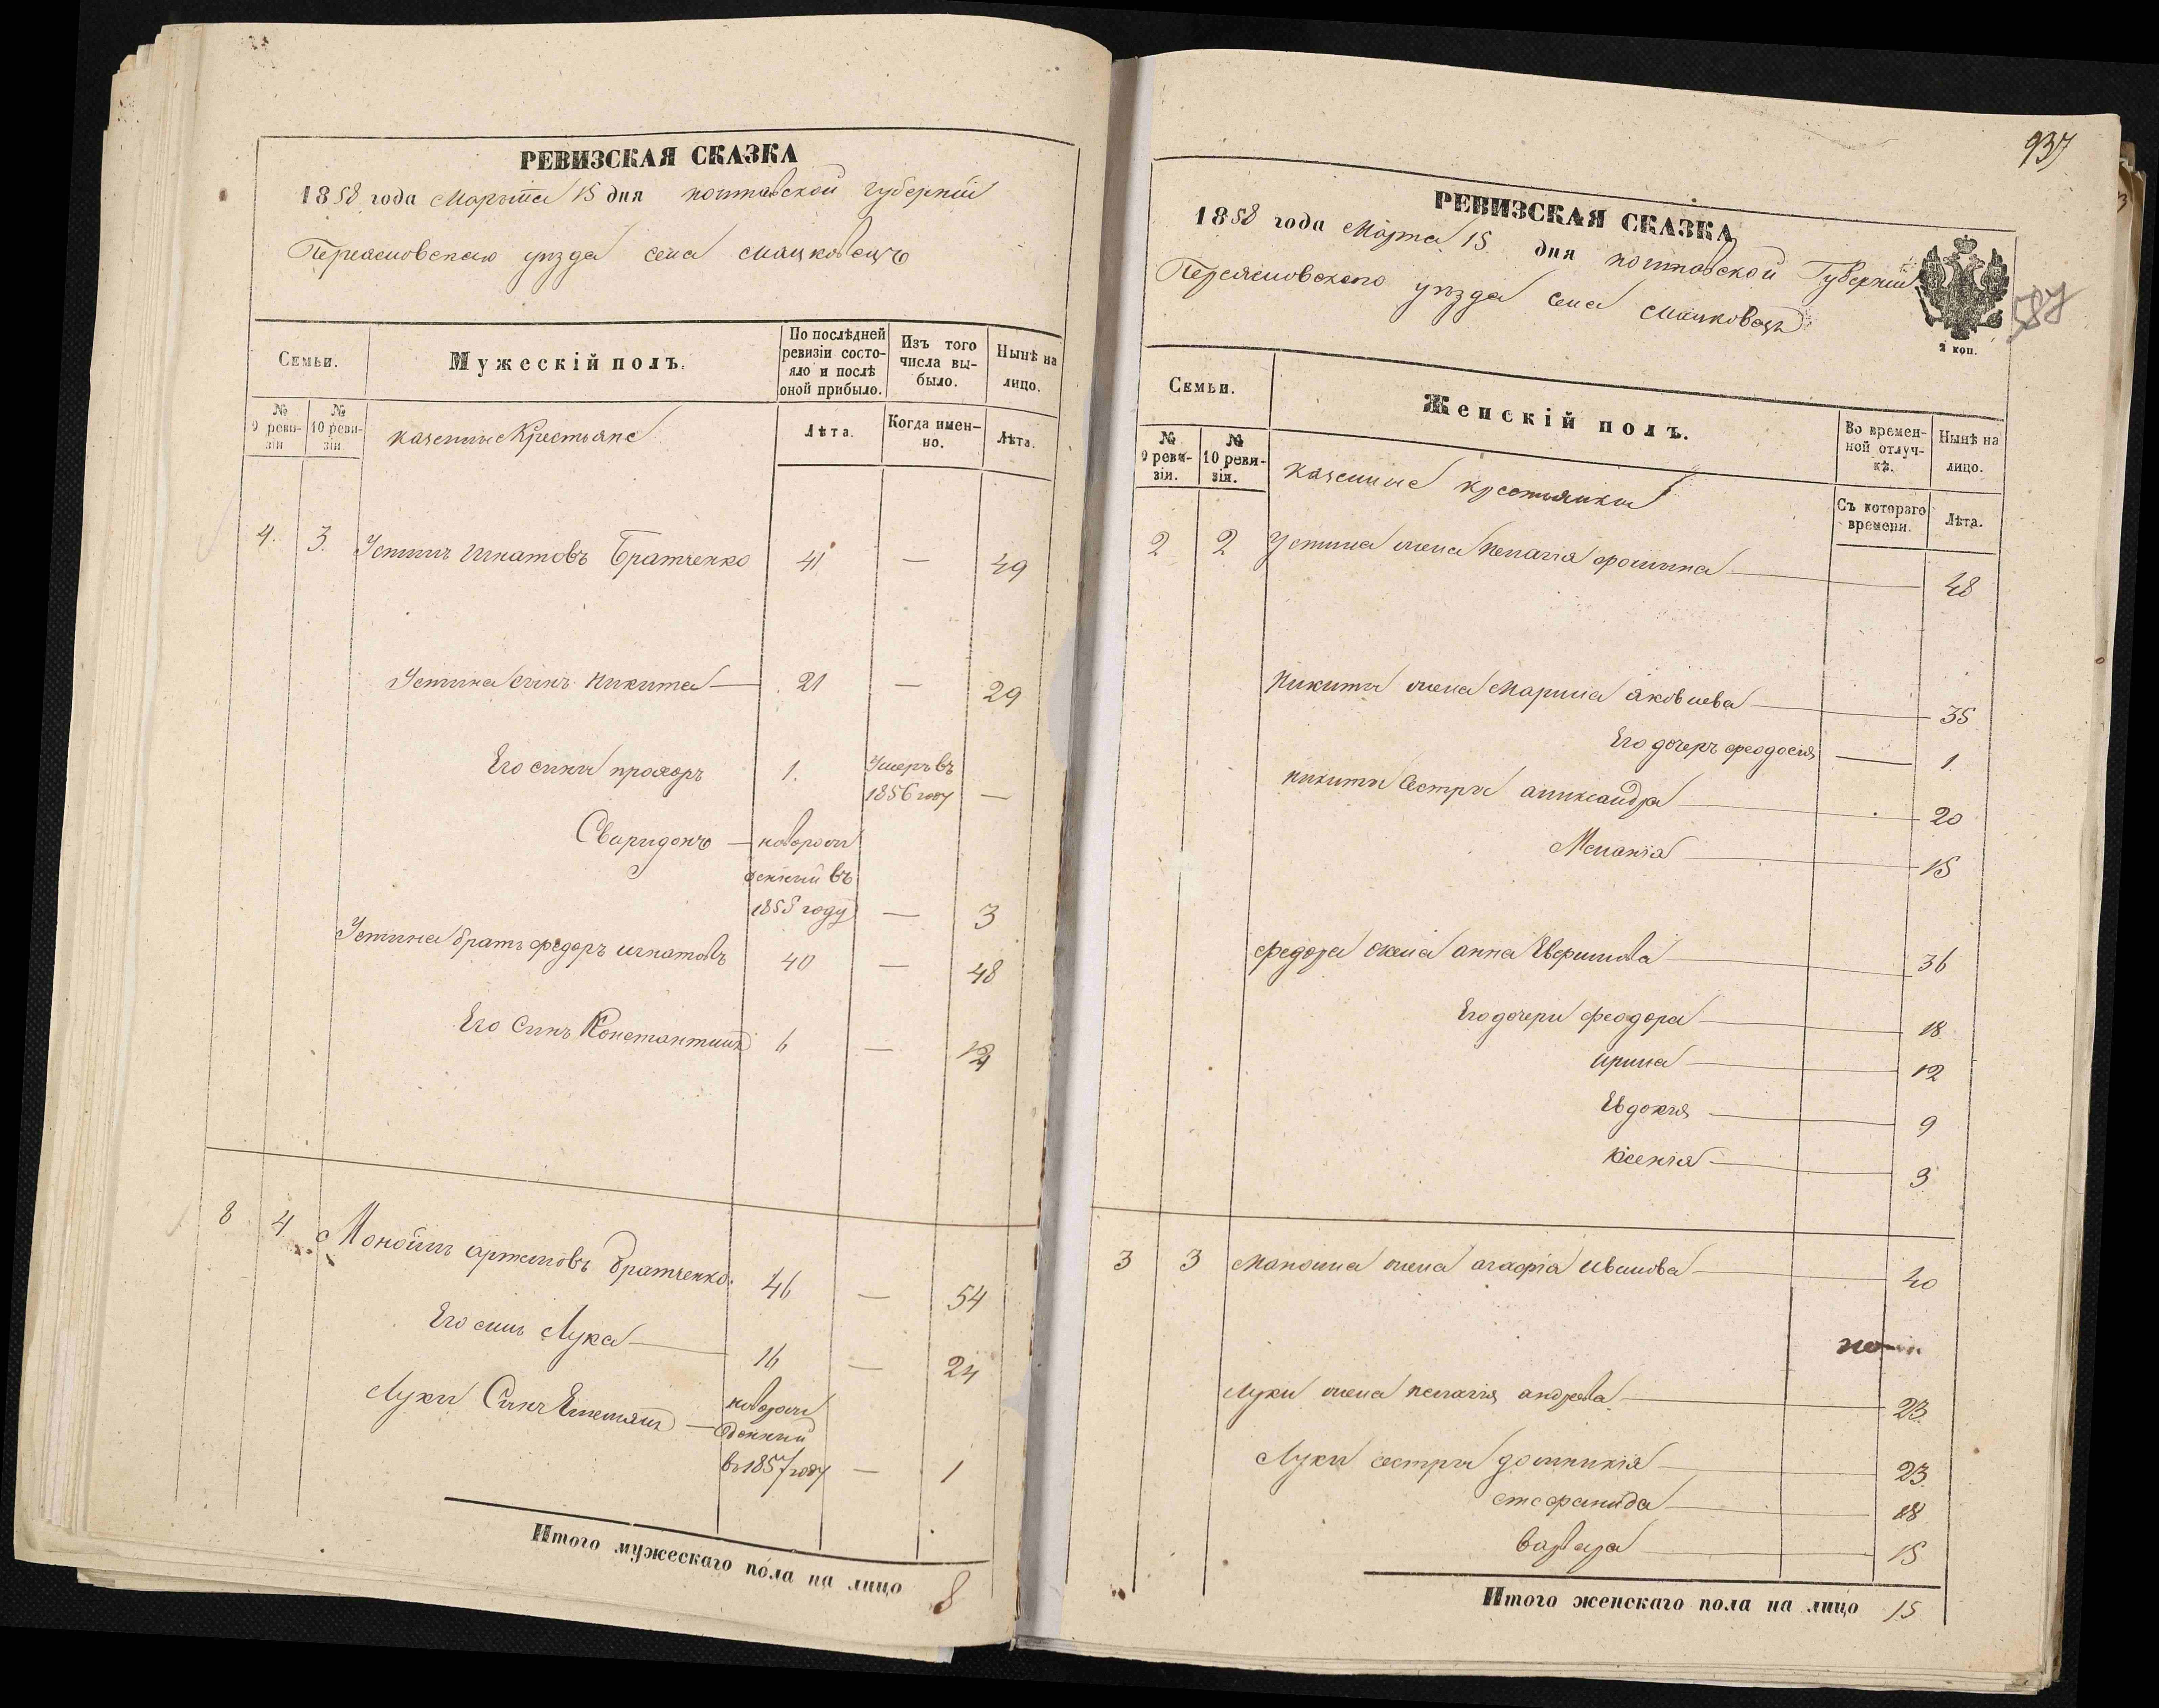 РЕВИЗСКАЯ СКАЗКА
1858 года Марта 15 дня полтавской губерніи
Переясловскаго уѣзда села Мацковецъ
Семьи.
Мужескій полъ.
По послѣдней ревизіи состояло и послѣ оной прибыло.
Изъ того числа выбыло.
Нынѣ на лицо.
№ 9 ревизіи
№ 10 ревизіи
казенные Крестьяне
Лѣта.
Когда именно.
Лѣта.
4. 3. Устинъ Игнатовъ Братченко 41 — 49
Устина сынъ Никита — 21 — 29
Его сыны прохоръ 1. Умеръ въ
1856 году —
Сваридонъ — новорож
денный въ
1855 году — 3
Устина братъ федоръ игнатовъ 40 — 48
Его Сынъ Константинъ 6 — 14
8 4 Моноилъ артемовъ братченко. 46 — 54
Его сынъ Лука — 16 — 24
Луки Сынъ Емельянъ — новорож
денный
въ 1857 году — 1
Итого мужескаго пола на лицо 8
937
РЕВИЗСКАЯ СКАЗКА
1858 года Марта 15 дня полтавской Губерніи
Переясловскаго уѣзда села Мацковецъ
2 коп.
Семьи.
Женскій полъ.
Во временной отлучкѣ.
Нынѣ на лицо.
№ 9 ревизіи.
№ 10 ревизіи.
казенные крестьянки
Съ котораго времени.
Лѣта.
2 2 Устина жена Пелагія фомина — 48
Никиты жена Марина яковлева — 35
Его дочерь феодосия — 1.
никиты Сестры александра — 20
Меланія — 15
федора жена анна Евфимова — 36
Его дочери феодора — 18
ирина — 12
Евдокия — 9
Ксенія — 3
3 3 Маноила жена агафія Иванова — 40
Луки жена пелагия андреева — 23.
Луки сестры домникія — 23.
стефанида — 18
варвара — 15
Итого женскаго пола на лицо 15